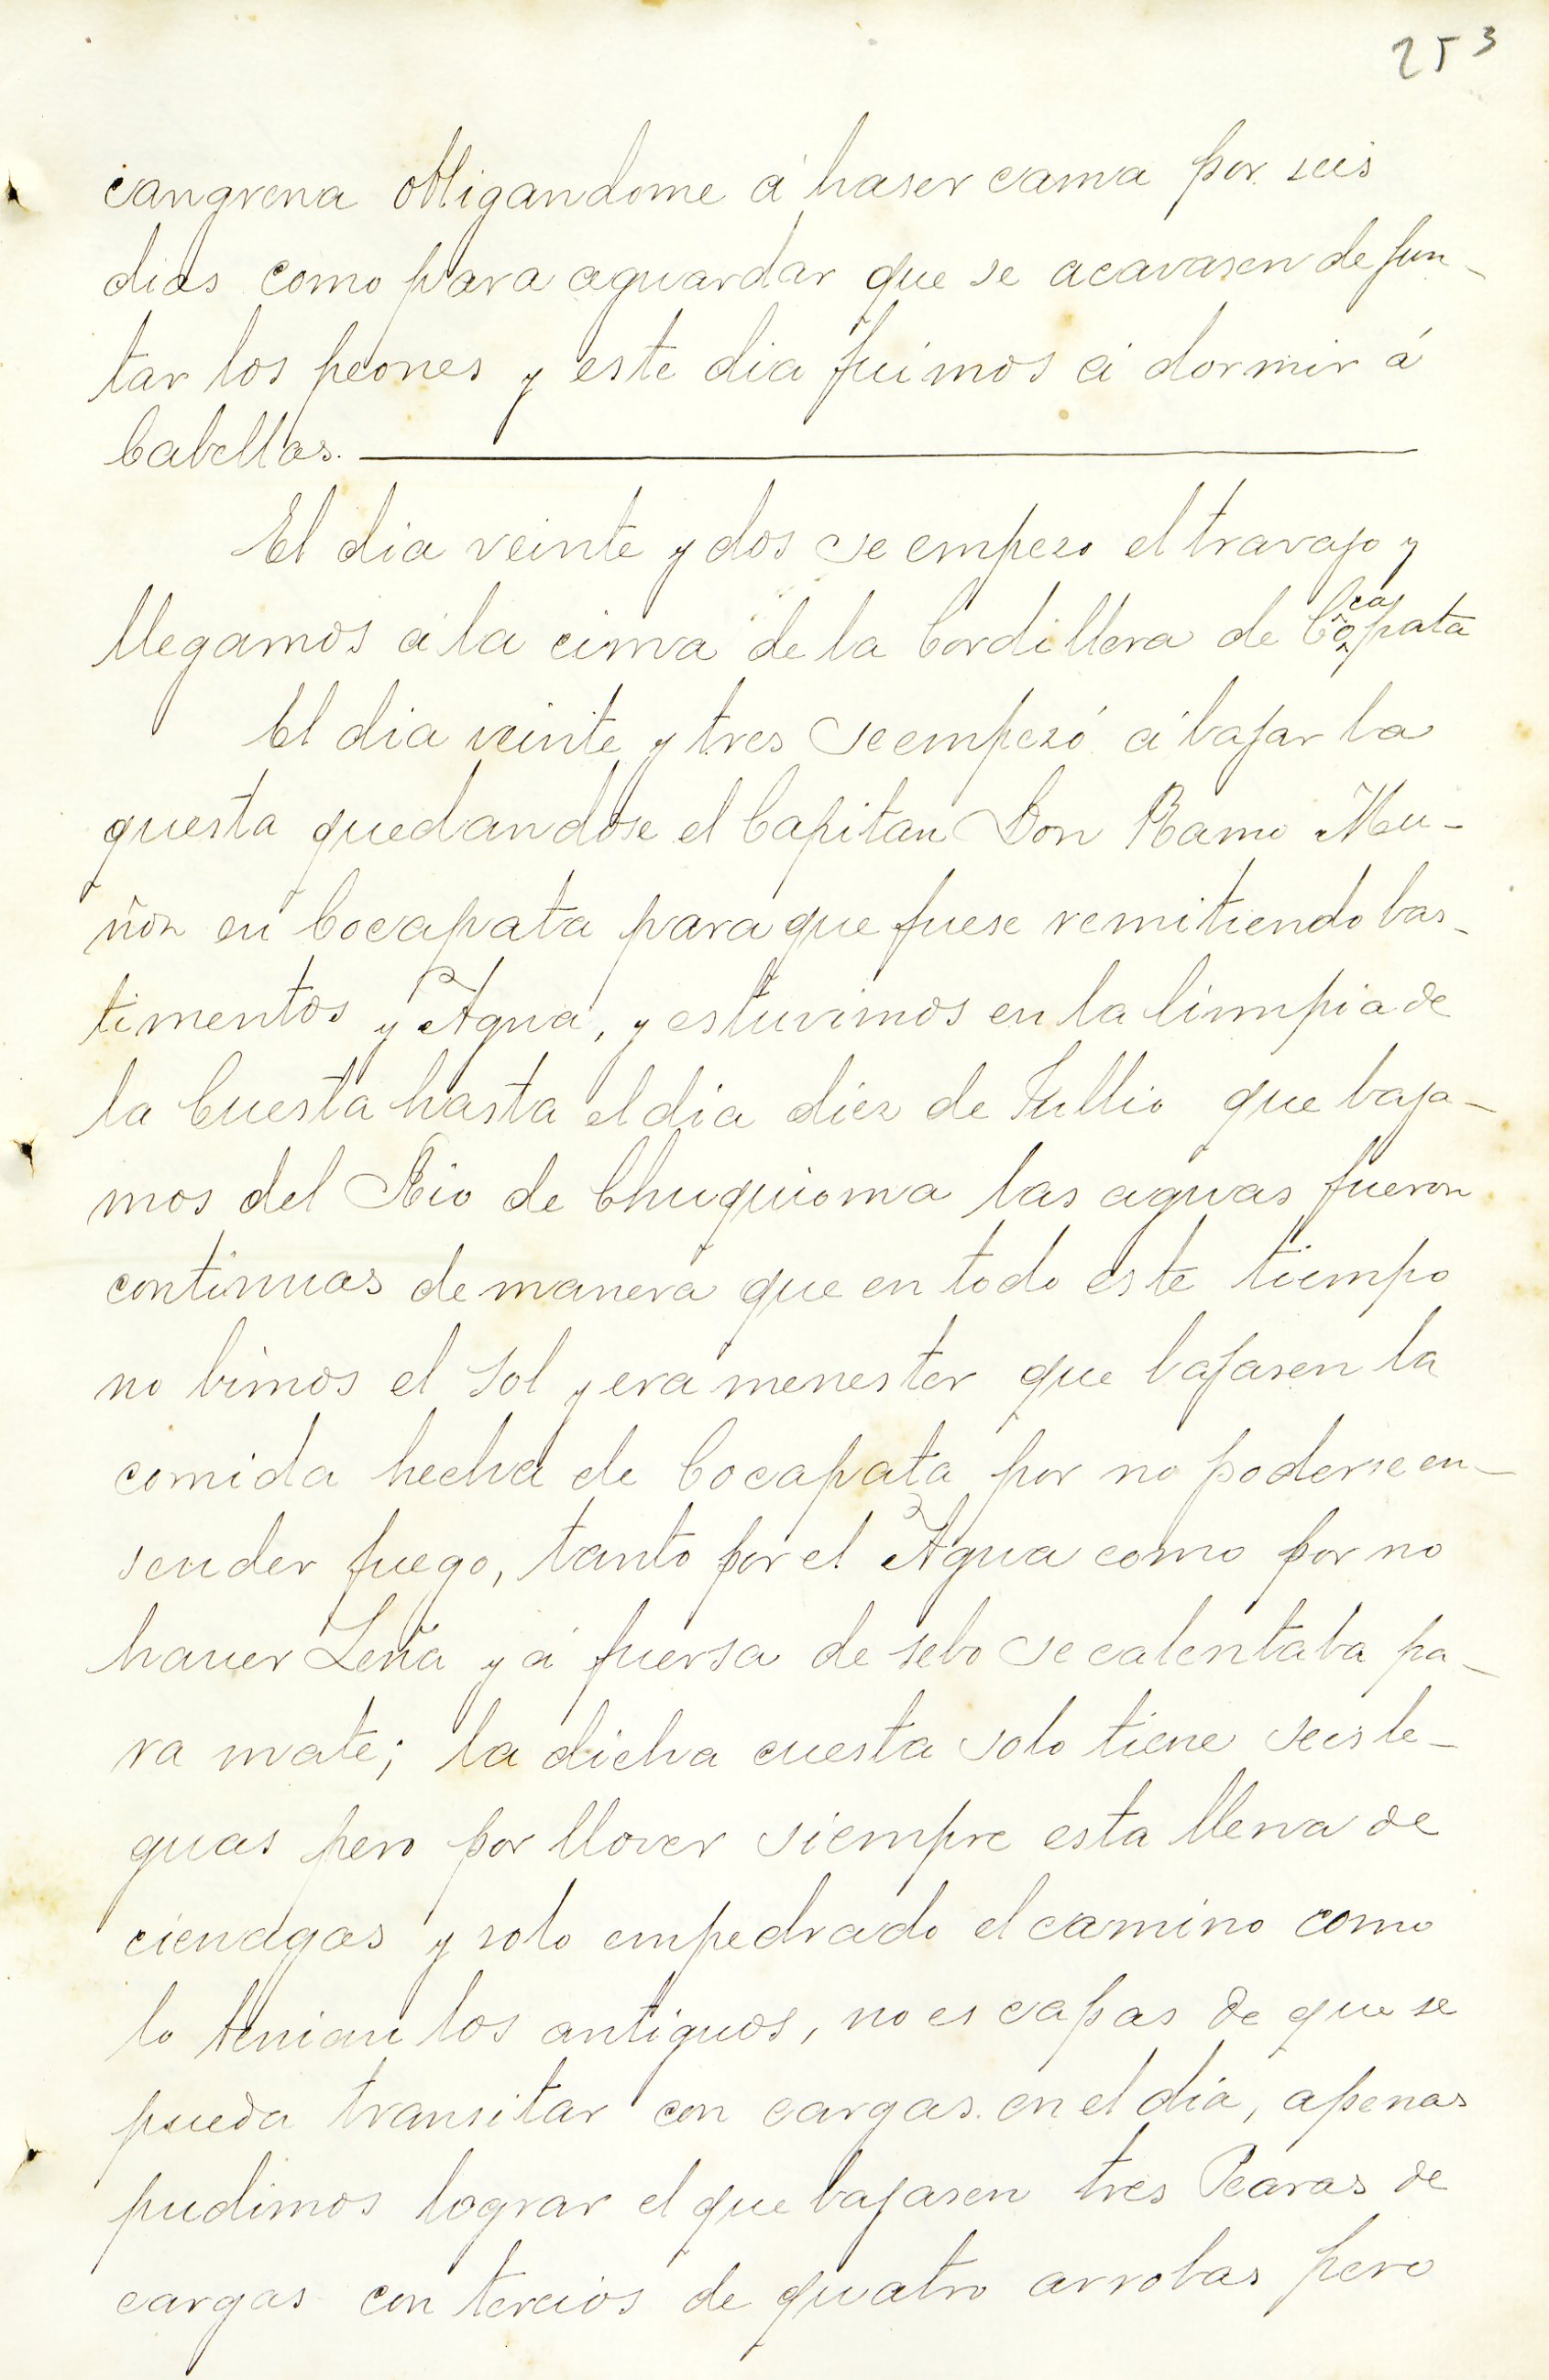 253
cangrena obligandome á haser cama por seis
dias como para aguardar que se acavasen de jun-
tar los peones y este dia fuimos á dormir á
Cabellas.
El dia veinte y dos se empezo el travajo y
llegamos á la cima de la Cordillera de Cocapata
El dia veinte y tres se empezó á bajar la
questa quedandose el Capitan Don Ramo Mu-
ñoz en Cocapata para que fuese remitiendo bas-
timentos y Agua, y estuvimos en la limpia de
la Cuesta hasta el dia diez de Jullio que baja-
mos del Rio de Chuquioma las aguas fueron
continuas de manera que en todo este tiempo
no bimos el Sol y era menester que bajasen la
comida hecha de Cocapata por no poderse en-
sender fuego, tanto por el Agua como por no
haver Leña y á fuersa de sebo se calentaba pa-
ra mate; la dicha cuesta solo tiene seis le-
guas pero por llover siempre esta llena de
cienagas y solo empedrado el camino como
lo tenian los antiguos, no es capas de que se
pueda transitar con cargas en el dia, apenas
pudimos lograr el que bajasen tres Pearas de
cargas con tercios de quatro arrobas pero